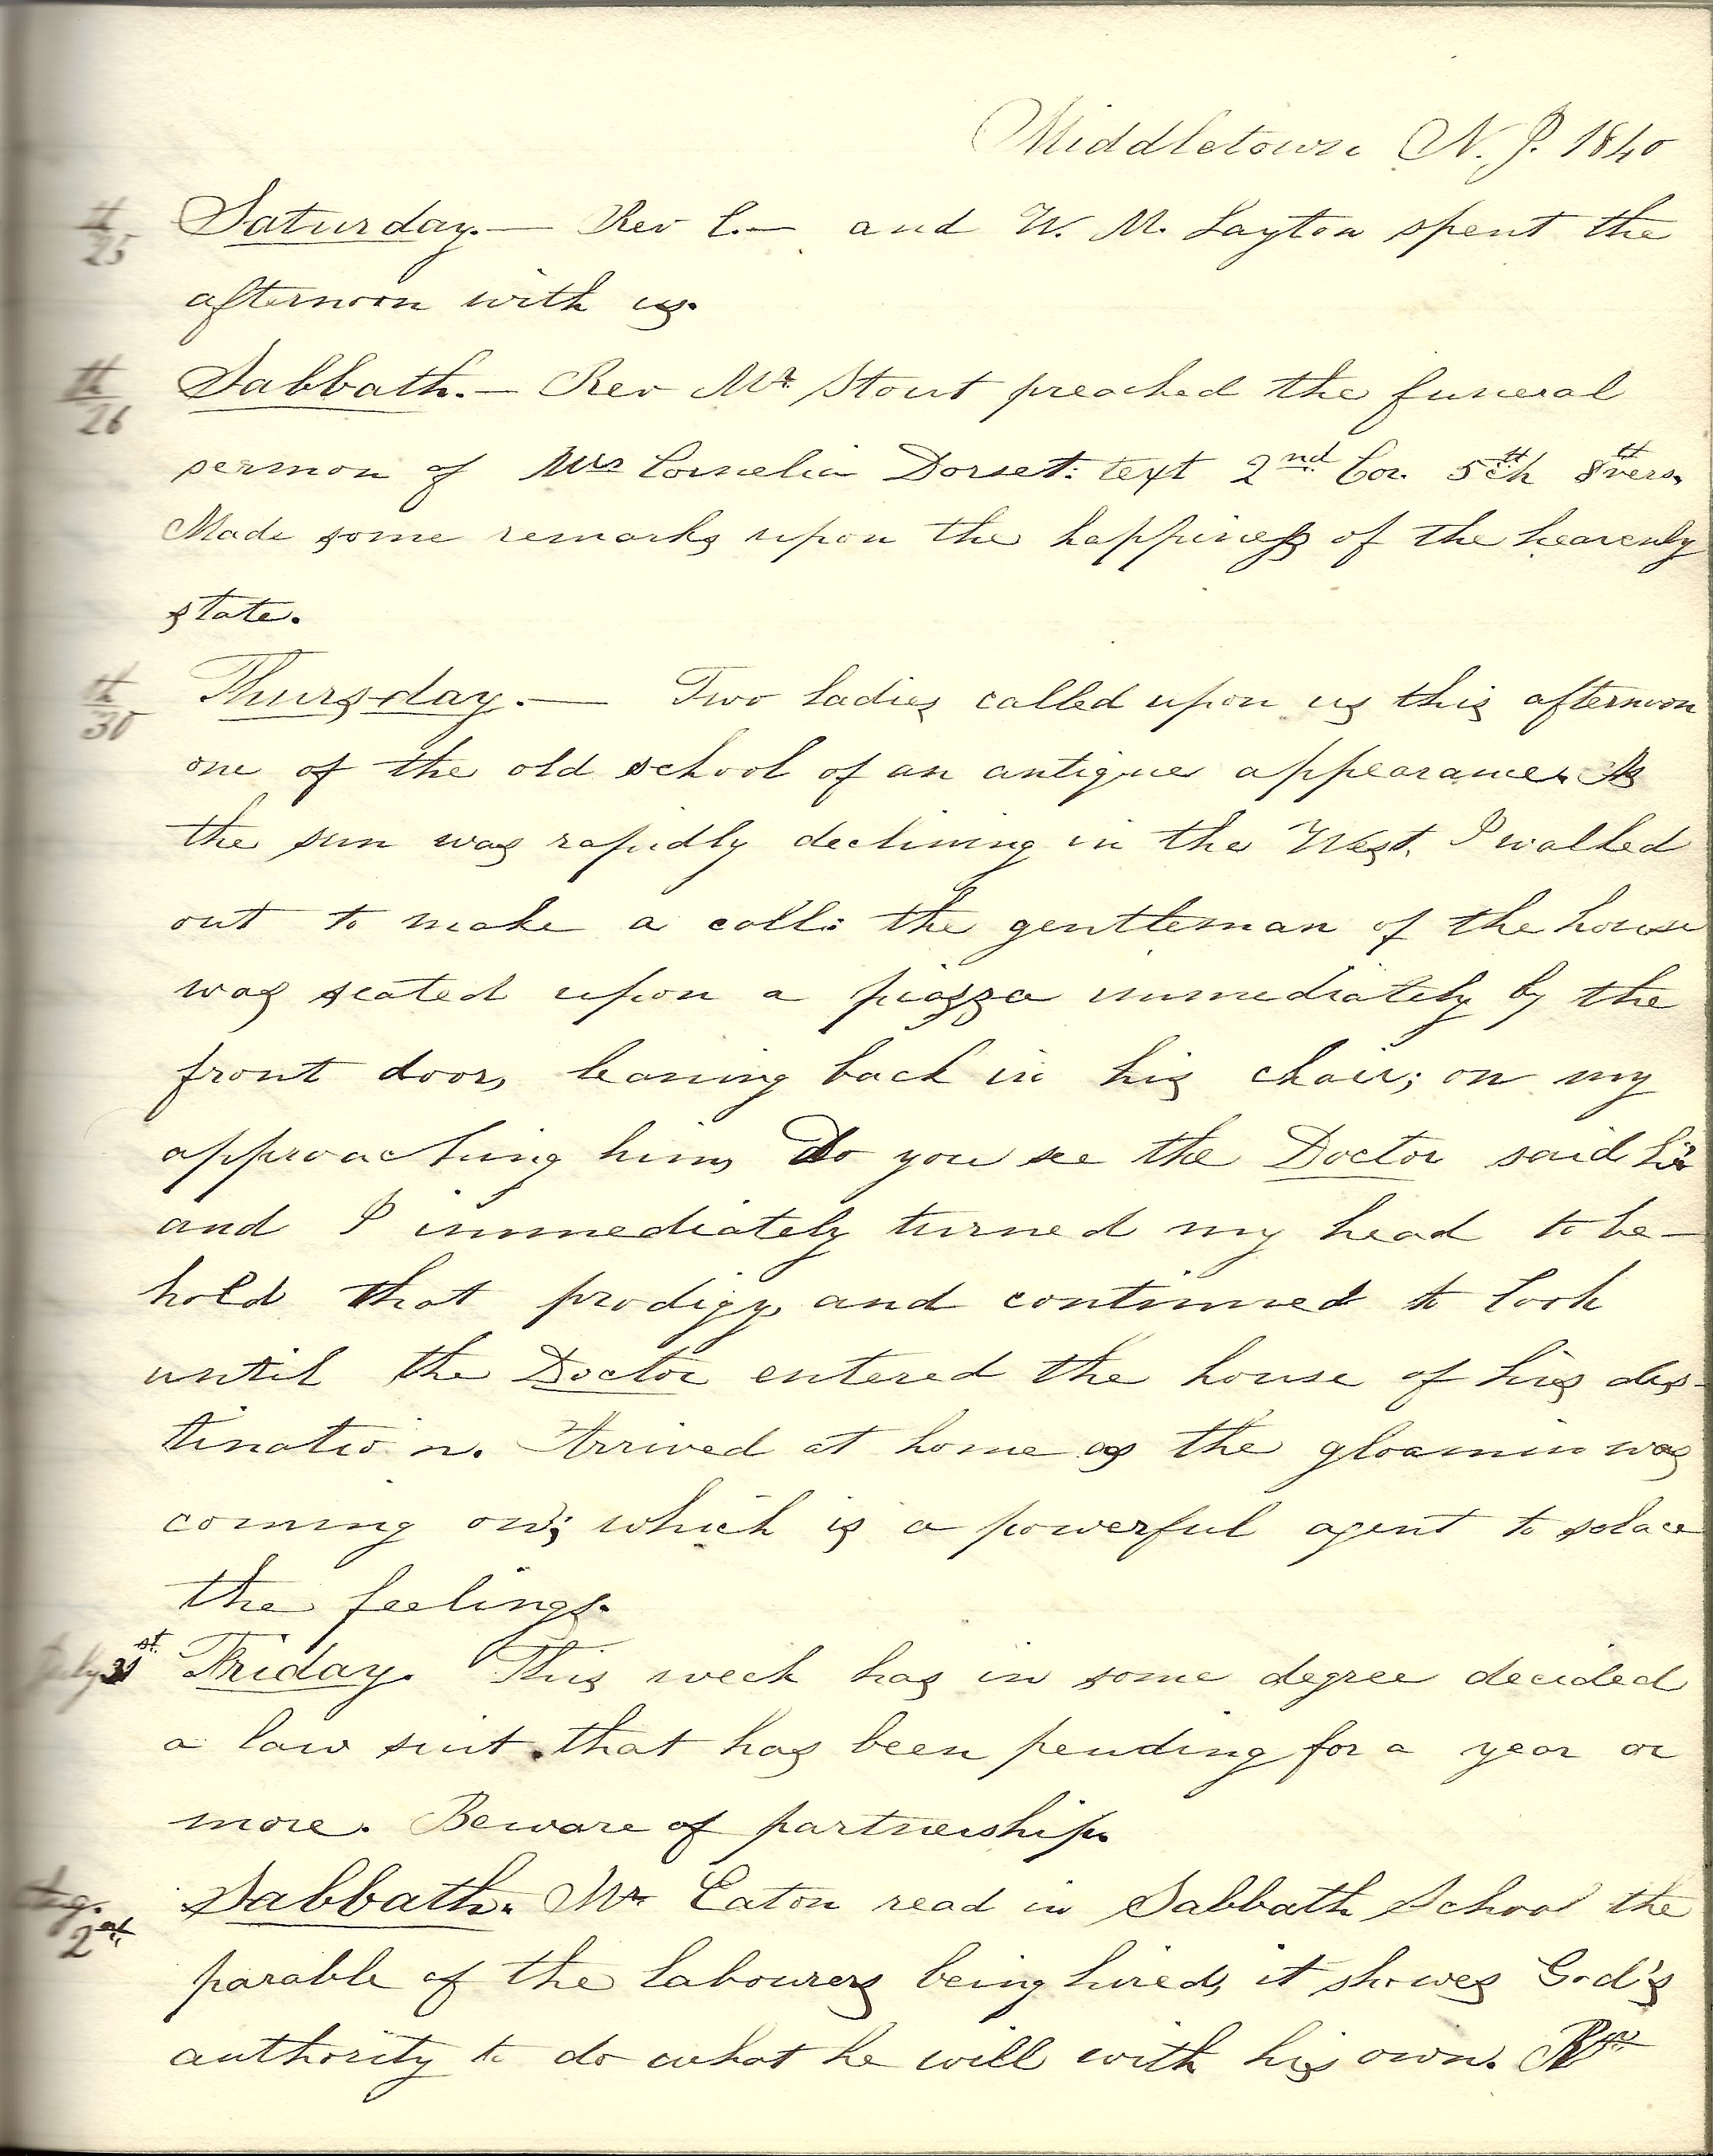 Middletown N. J. 1840
25th Saturday.— Rev E.— and W. M. Layton spent the
afternoon with us.
26th Sabbath.— Rev Mr Stout preached the funeral
sermon of Mrs Cornelia Dorset: text 2nd Cor. 5th ch 8th vers.
Made some remarks upon the happiness of the heavenly
state.
30th Thursday.— Two ladies called upon us this afternoon
one of the old school of an antique appearance. As
the sun was rapidly declining in the West. I walked
out to make a call: the gentleman of the house
was seated upon a piazza immediately by the
front door, leaning back in his chair; on my
approaching him, Do you see the Doctor said he
and I immediately turned my head to be-
hold that prodigy, and continued to look
until the Doctor entered the house of his des-
tination. Arrived at home as the gloamin was
coming on; which is a powerful agent to solace
the feelings.
July 31st Friday. This week has in some degree decided
a law suit that has been pending for a year or
more. Beware of partnership.
Aug. 2nd Sabbath. Mr Eaton read in Sabbath School the
parable of the labourers being hired, it showes God's
authority to do what he will with his own. Rev